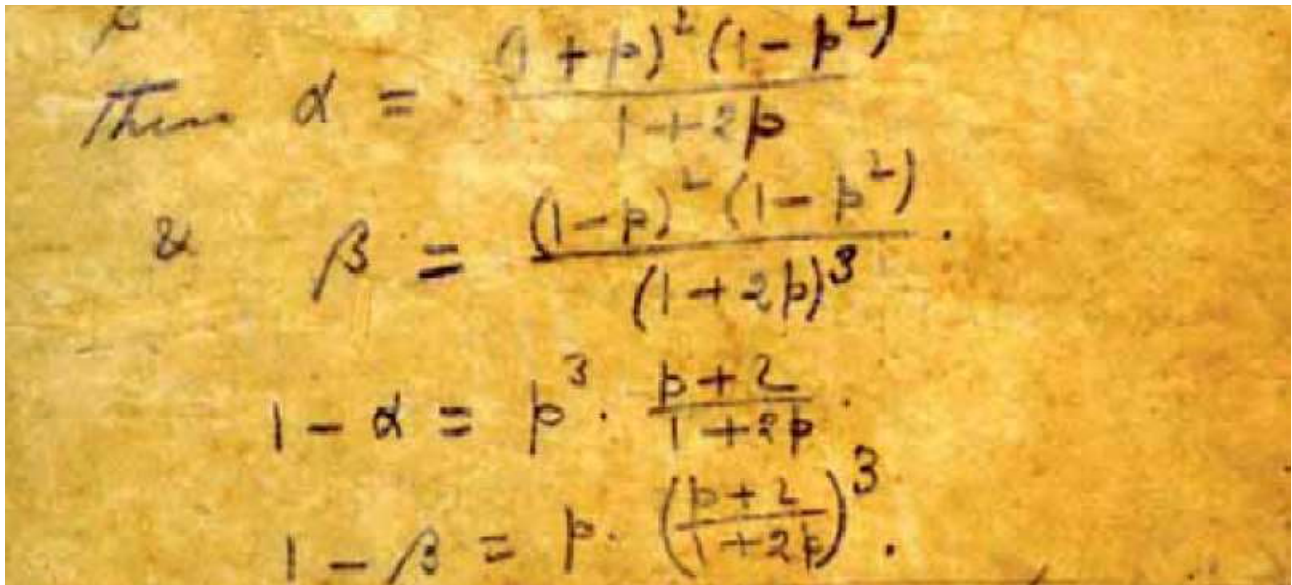 Then α = (1 + p)² (1 - p²) / 1 + 2p
& β = (1 - p)² (1 - p²) / (1 + 2p)³ .
1 - α = p³ · p + 2 / 1 + 2p .
1 - β = p · (p + 2 / 1 + 2p)³ .